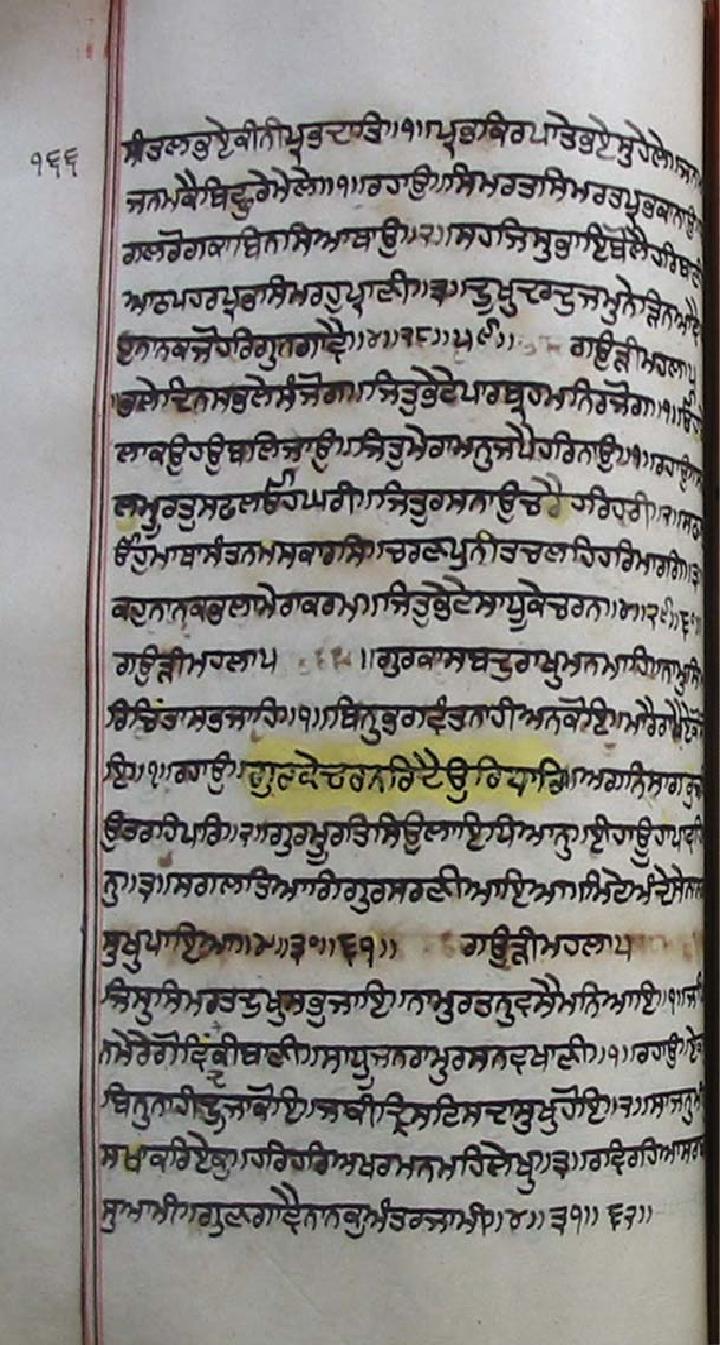 ੧੬੬
ਸੀਤਲਭਏਕੀਨੀਪ੍ਰਭਦਾਤਿ॥੧॥ਪ੍ਰਭਕਿਰਪਾਤੇਭਏਸੁਹੇਲੇ॥ਜਨਮ
ਜਨਮਕੇਬਿਛੁਰੇਮੇਲੇ॥੧॥ਰਹਾਉ॥ਸਿਮਰਤਸਿਮਰਤਪ੍ਰਭਕਾਨਾਉ॥
ਗਲਰੋਗਕਾਬਿਨਸਿਆਥਾਉ॥੨॥ਸਹਜਿਸੁਭਾਇਬੋਲੈਹਰਿਬਾਣੀ
ਆਠਪਹਰਪ੍ਰਭਸਿਮਰਹੁਪ੍ਰਾਣੀ॥੩॥ਦੂਖੁਦਰਦੁਜਮੁਨੇੜਿਨਆਵੈ
ਨਾਨਕਜੋਹਰਿਗੁਨਗਾਵੈ॥੪॥੨੮॥੫੯॥ ਗਉੜੀਮਹਲਾ੫
ਭਲੇਦਿਨਸਭਲੇਸੰਜੋਗ॥ਜਿਤੁਭੇਟੇਪਾਰਬ੍ਰਹਮਨਿਰਜੋਗ॥੧॥ਓਹ
ਲਾਕਉਹਉਬਲਿਜਾਉ॥ਜਿਤੁਮੇਰਾਮਨੁਜਪੈਹਰਿਨਾਉ॥੧॥ਰਹਾਉ॥
ਲਮੂਰਤੁਸਫਲਓਹਘਰੀ॥ਜਿਤੁਰਸਨਾਉਚਰੈਹਰਿਹਰੀ॥੨॥ਸਫ
ਓਹੁਮਾਥਾਸੰਤਨਮਸਕਾਰਸਿ॥ਚਰਣਪੁਨੀਤਚਲਹਿਹਰਿਮਾਰਗਿ॥੩
ਕਹੁਨਾਨਕਭਲਾਮੇਰਾਕਰਮ॥ਜਿਤੁਭੇਟੇਸਾਧੂਕੇਚਰਨ॥੪॥੨੯॥੬੦॥
ਗਉੜੀਮਹਲਾ੫ ॥ਗੁਰਕਾਸਬਦੁਰਾਖੁਮਨਮਾਹਿ॥ਨਾਮੁਸਿ
ਰਿਚਿੰਤਾਸਭਜਾਹਿ॥੧॥ਬਿਨੁਭਗਵੰਤਨਾਹੀਅਨਕੋਇ॥ਮਾਰੈਰਾਖੈਏਕੋ
ਇ॥੧॥ਰਹਾਉ॥ਗੁਰਕੇਚਰਨਰਿਦੈਉਰਿਧਾਰਿ॥ਅਗਨਿਸਾਗਰੁਜ
ਉਤਰਹਿਪਾਰਿ॥੨॥ਗੁਰਮੂਰਤਿਸਿਉਲਾਇਧਿਆਨੁ॥ਈਹਾਊਹਾਪਾਵਹਿ
ਨੁ॥੩॥ਸਗਲਤਿਆਗਿਗੁਰਸਰਣੀਆਇਆ॥ਮਿਟੇਅੰਦੇਸੇਨਾਨਕ
ਸੁਖੁਪਾਇਆ॥੪॥੩੦॥੬੧॥ ਗਉੜੀਮਹਲਾ੫
ਜਿਸੁਸਿਮਰਤਦੂਖੁਸਭੁਜਾਇ॥ਨਾਮੁਰਤਨੁਵਸੈਮਨਿਆਇ॥੧॥ਜਪਿ
ਨਮੇਰੇਗੋਵਿੰਦਕੀਬਾਣੀ॥ਸਾਧੂਜਨਰਾਮੁਰਸਨਵਖਾਣੀ॥੧॥ਰਹਾਉ॥ਇਕਸੁ
ਬਿਨੁਨਾਹੀਦੂਜਾਕੋਇ॥ਜਾਕੀਦ੍ਰਿਸਟਿਸਦਾਸੁਖੁਹੋਇ॥੨॥ਸਾਜਨੁਮੀ
ਸਖਾਕਰਿਏਕੁ॥ਹਰਿਹਰਿਅਖਰਮਨਮਹਿਲੇਖੁ॥੩॥ਰਵਿਰਹਿਆਸਰਬ
ਸੁਆਮੀ॥ਗੁਣਗਾਵੈਨਾਨਕੁਅੰਤਰਜਾਮੀ॥੪॥੩੧॥੬੨॥